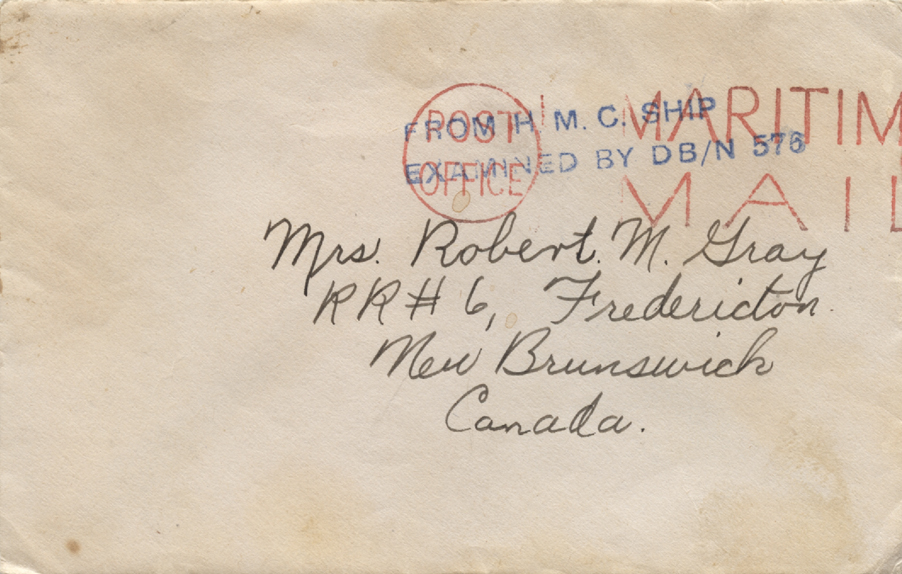 POST OFFICE
MARITIM
MAIL
FROM H. M. C. SHIP
EXAMINED BY DB/N 576
Mrs. Robert. M. Gray
RR# 6, Fredericton.
New Brunswick
Canada.